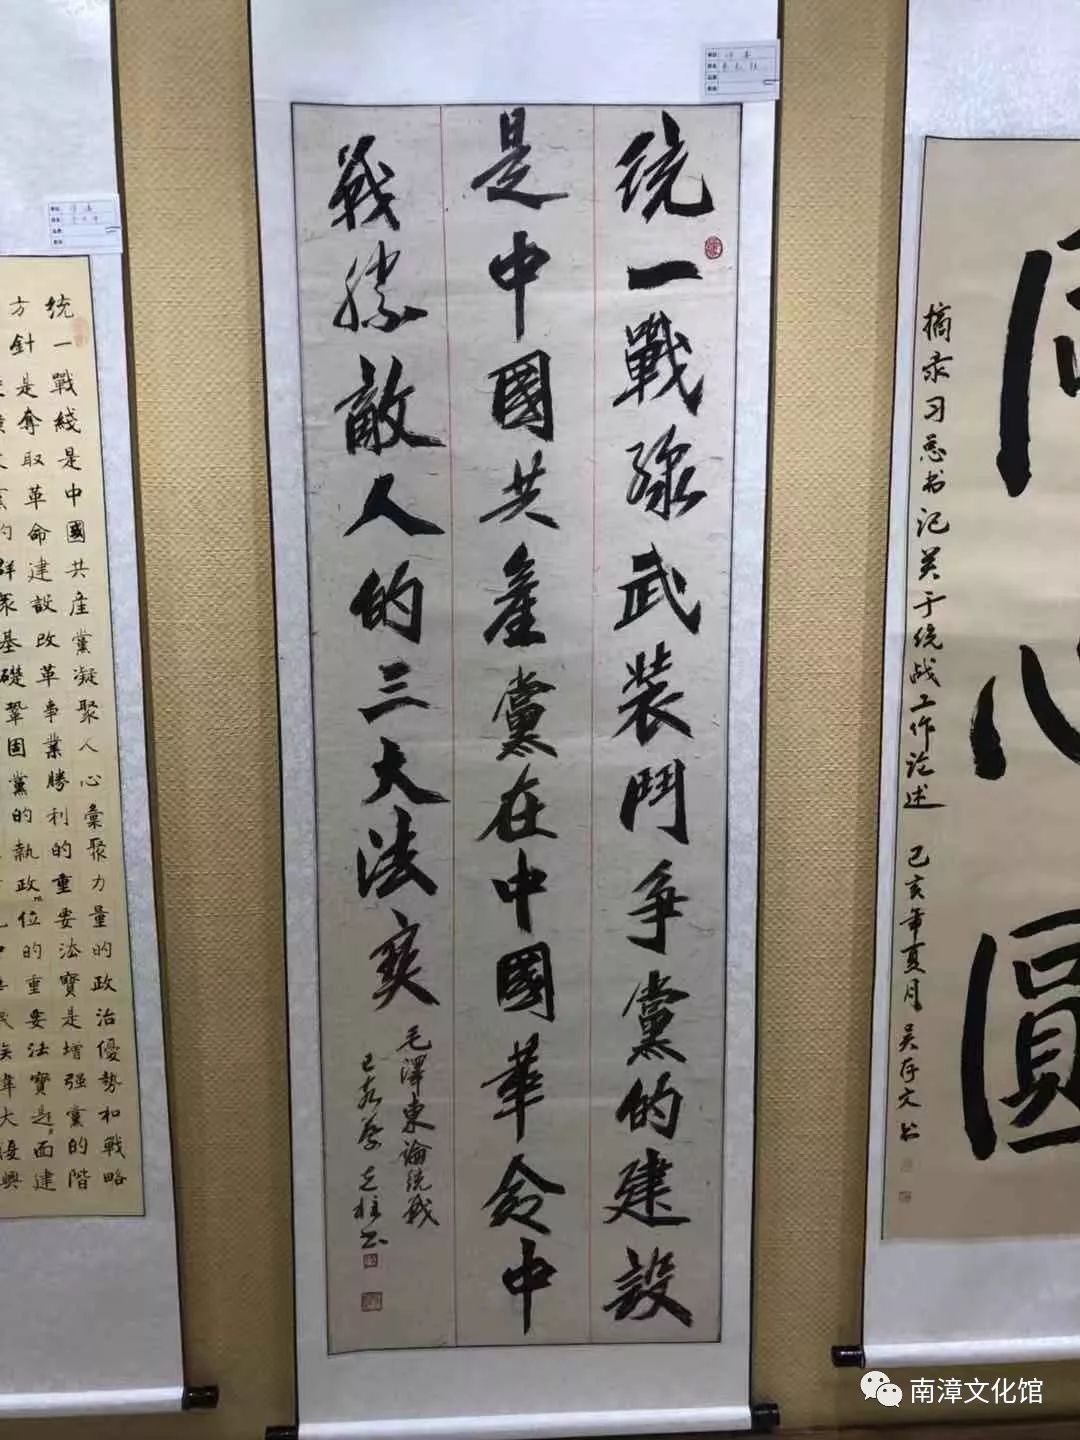 统一戰線武裝鬥爭黨的建設
是中國共產黨在中國革命中
戰勝敵人的三大法寶
毛澤東論统戰
统一戰綫是中國共産黨凝聚人心彙聚力量的政治優勢和戰略
方針是奪取革命建設改革事業勝利的重要法寶是增强黨的階
的群衆基礎鞏固黨的執政位的重要法寶是面建
同心圓
摘录习总书记关于统战工作论述 己亥年夏月 吴存文书
南漳文化馆